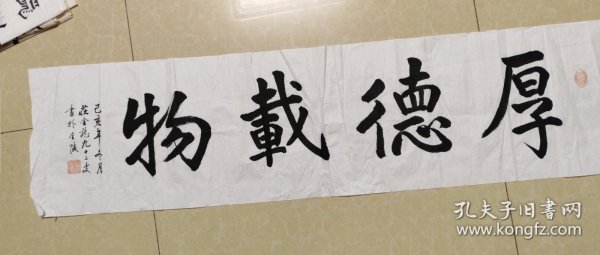 厚德載物
己亥年冬月
莊金福九十二叟
書於金陵
孔夫子旧書网
www.kongfz.com